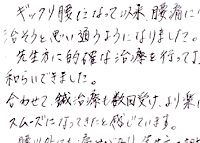 ギックリ腰になって以来、腰痛に
治そうと思い通うようになりました。
先生方に的確な治療を行って
和らいできました。
合わせて、鍼治療も数回受け、より楽
スムーズになってきたと感じています。
腰以外にも